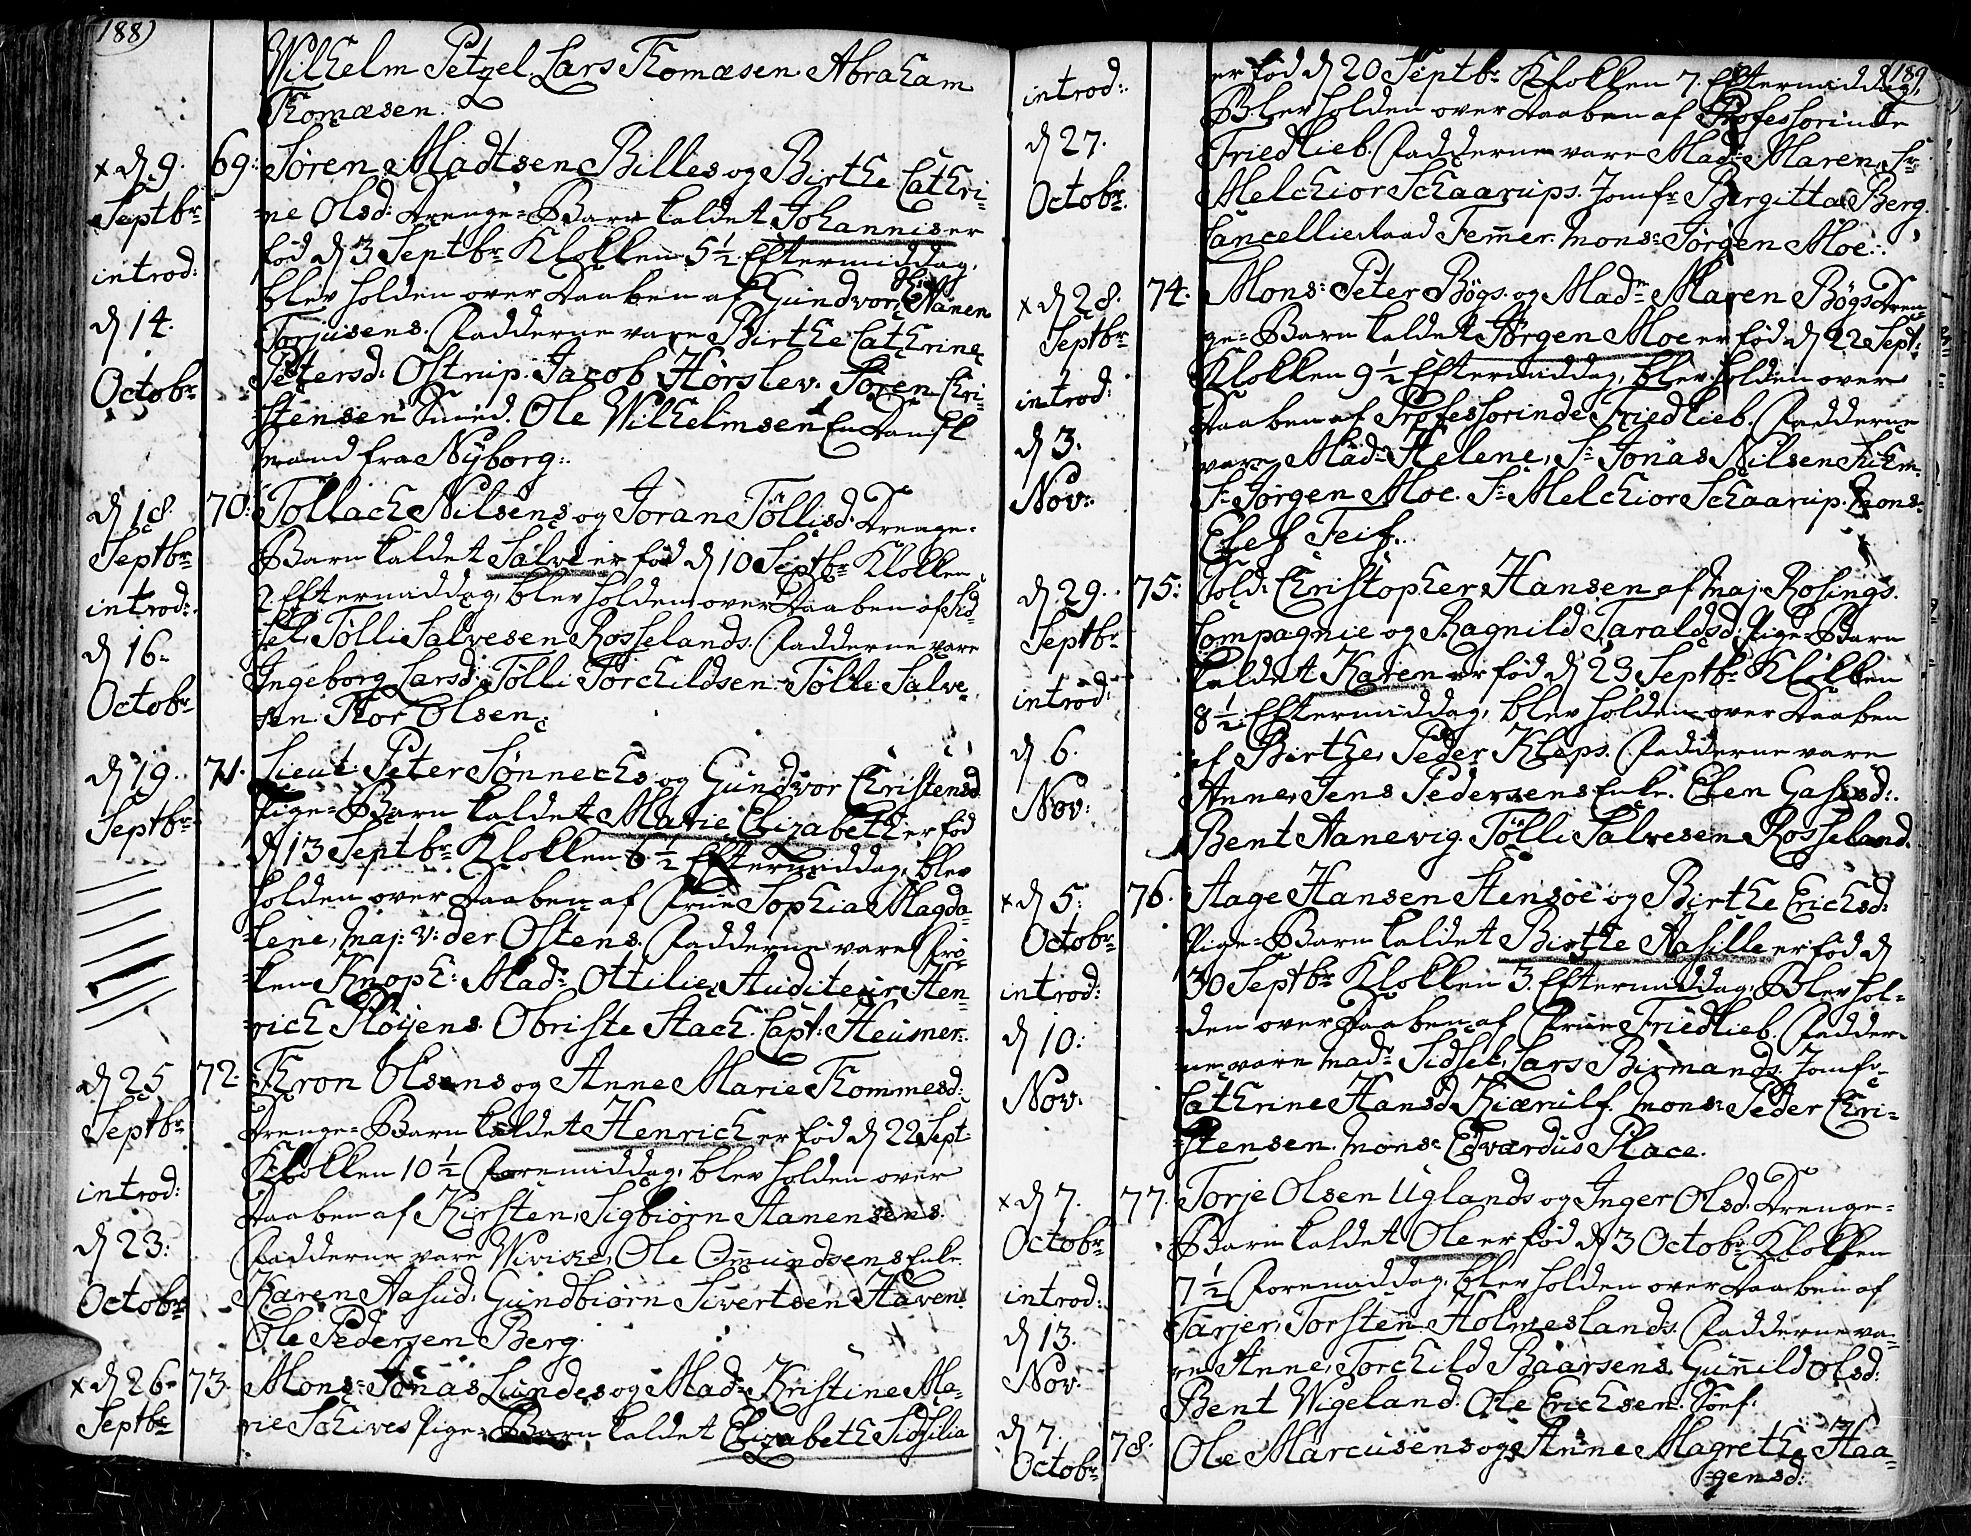 188)
Wilhelm Petzel. Lars Thomæsen. Abraham
Thomæsen.
x d 9. Septbr. introd: d 14. Octobr.
69: Søren Madtsen Billes og Birthe Cathri-
ne Olsd: Drenge-Barn kaldet Johannis er
fød d 3 Septbr Klokken 5½ Eftermiddag,
blev holden over Daaben af Gundvor,
Torjusens. Fadderne vare Birthe Cathrine
Petersd: Ostrup. Jacob Hørslev. Søren Chri-
stensen Smed. Ole Wilhelmsen En Dansk
mand fra Nyborg:.
d 18. Septbr. introd: d 16. Octobr.
70: Tollach Nilsens og Joran Töllisd. Drenge-
Barn kaldet Salve er fød d 10 Septbr Klokken
2 Eftermiddag, blev holden over Daaben af Sid-
sel, Tölli Salvesen Rosselands. Fadderne vare
Ingeborg Larsd: Tölli Torchildsen. Tölli Salve-
sen. Thor Olsen.
d 19. Septbr.
71. Lieut: Peter Sønnechs og Gundvor Christensd
Pige-Barn kaldet Marie Elizabeth er fød
d 13 Septbr Klokken 6½ Eftermiddag, blev
holden over Daaben af Frue Sophia Magda-
lene, Maj: V: der Ostens. Fadderne vare Frö-
ken Knoph: Mad: Ottilie, Auditeur Hen-
rich Fløyens. Obriste Stach. Capt: Heumer.
d 25 Septbr. introd: d 23: Octobr.
72. Thron Olsens og Anne Marie Thommesd:
Drenge-Barn kaldet Henrich er fød d 22 Sept:
Klokken 10½ Formiddag, blev holden over
Daaben af Kirsten, Sigbiørn Aanensens.
Fadderne vare Wiviche, Ole Omundsens Enke.
Karen Aasud. Gundbiørn Sivertsen Haven.
Ole Pedersen Berg.
x d 26 Septbr.
73. Mons: Jonas Lundes og Mad: Kristine Ma-
rie Schives Pige-Barn kaldet Elizabeth Sidsilia
189
introd: d 27. Octobr.
er fød d 20 Septbr Klokken 7. Eftermiddag,
Blev holden over Daaben af Professorinde
Friedlieb. Fadderne vare Mad: Maren, Sr
Melchior Schaarups. Jomfr Bergitta Berg.
Cancellieraad Femmer. Mons: Jørgen Moe:.
x d 28. Septbr. introd: d 3. Nov:
74: Mons: Peter Bögs og Madme Maren Bögs Dren-
ge-Barn kaldet Jørgen Moe er fød d 22 Sept:
Klokken 9½ Eftermiddag, blev holden over
Daaben af Professorinde Friedlieb. Fadderne
vare Mad: Helene, Sr Jonas Nilsen
Sr Jørgen Moe. Sr Melchior Schaarup. Mons:
Feif.
d 29. Septbr. introd: d 6. Nov:
75: Sold: Christopher Hansen af Maj: Rosings.
Compagnie og Ragnild Taraldsd: Pige-Barn
kaldet Karen er fød d 23 Septbr Klokken
8½ Eftermiddag, blev holden over Daaben
af Birthe, Peder Kleps. Fadderne vare
Anne, Jens Pedersens Enke. Elen
Bent Aanevig. Tölli Salvesen Rosseland.
x d 5: Octobr. introd: d 10: Nov.
76. Aage Hansen Stensöe og Birthe Erichsd:
Pige-Barn kaldet Birthe Aasille er fød d
30 Septbr Klokken 3. Eftermiddag, Blev hol-
den over Daaben af Frue Friedlieb. Fadder-
ne vare Mad: Sidsel, Lars Birmands. Jomfr
Cathrine Hansd. Kiærulf. Mons: Peder Chri-
stensen. Mons: Edvardus Place.
x d 7. Octobr. introd: d 13. Nov.
77. Torje Olsen Uglands og Inger Olsd: Drenge-
Barn kaldet Ole er fød d 3 Octobr: Klokken
7½ Formiddag, blev holden over Daaben af
Tarjer, Torsten Holmeslands. Fadderne va-
re Anne, Torchild Baarsens. Gunild Olsd:
Bent Wigeland. Ole Erichsen
d 7. Octobr.
78. Ole Marcusens og Anne Magrethe Haa-
gensd: